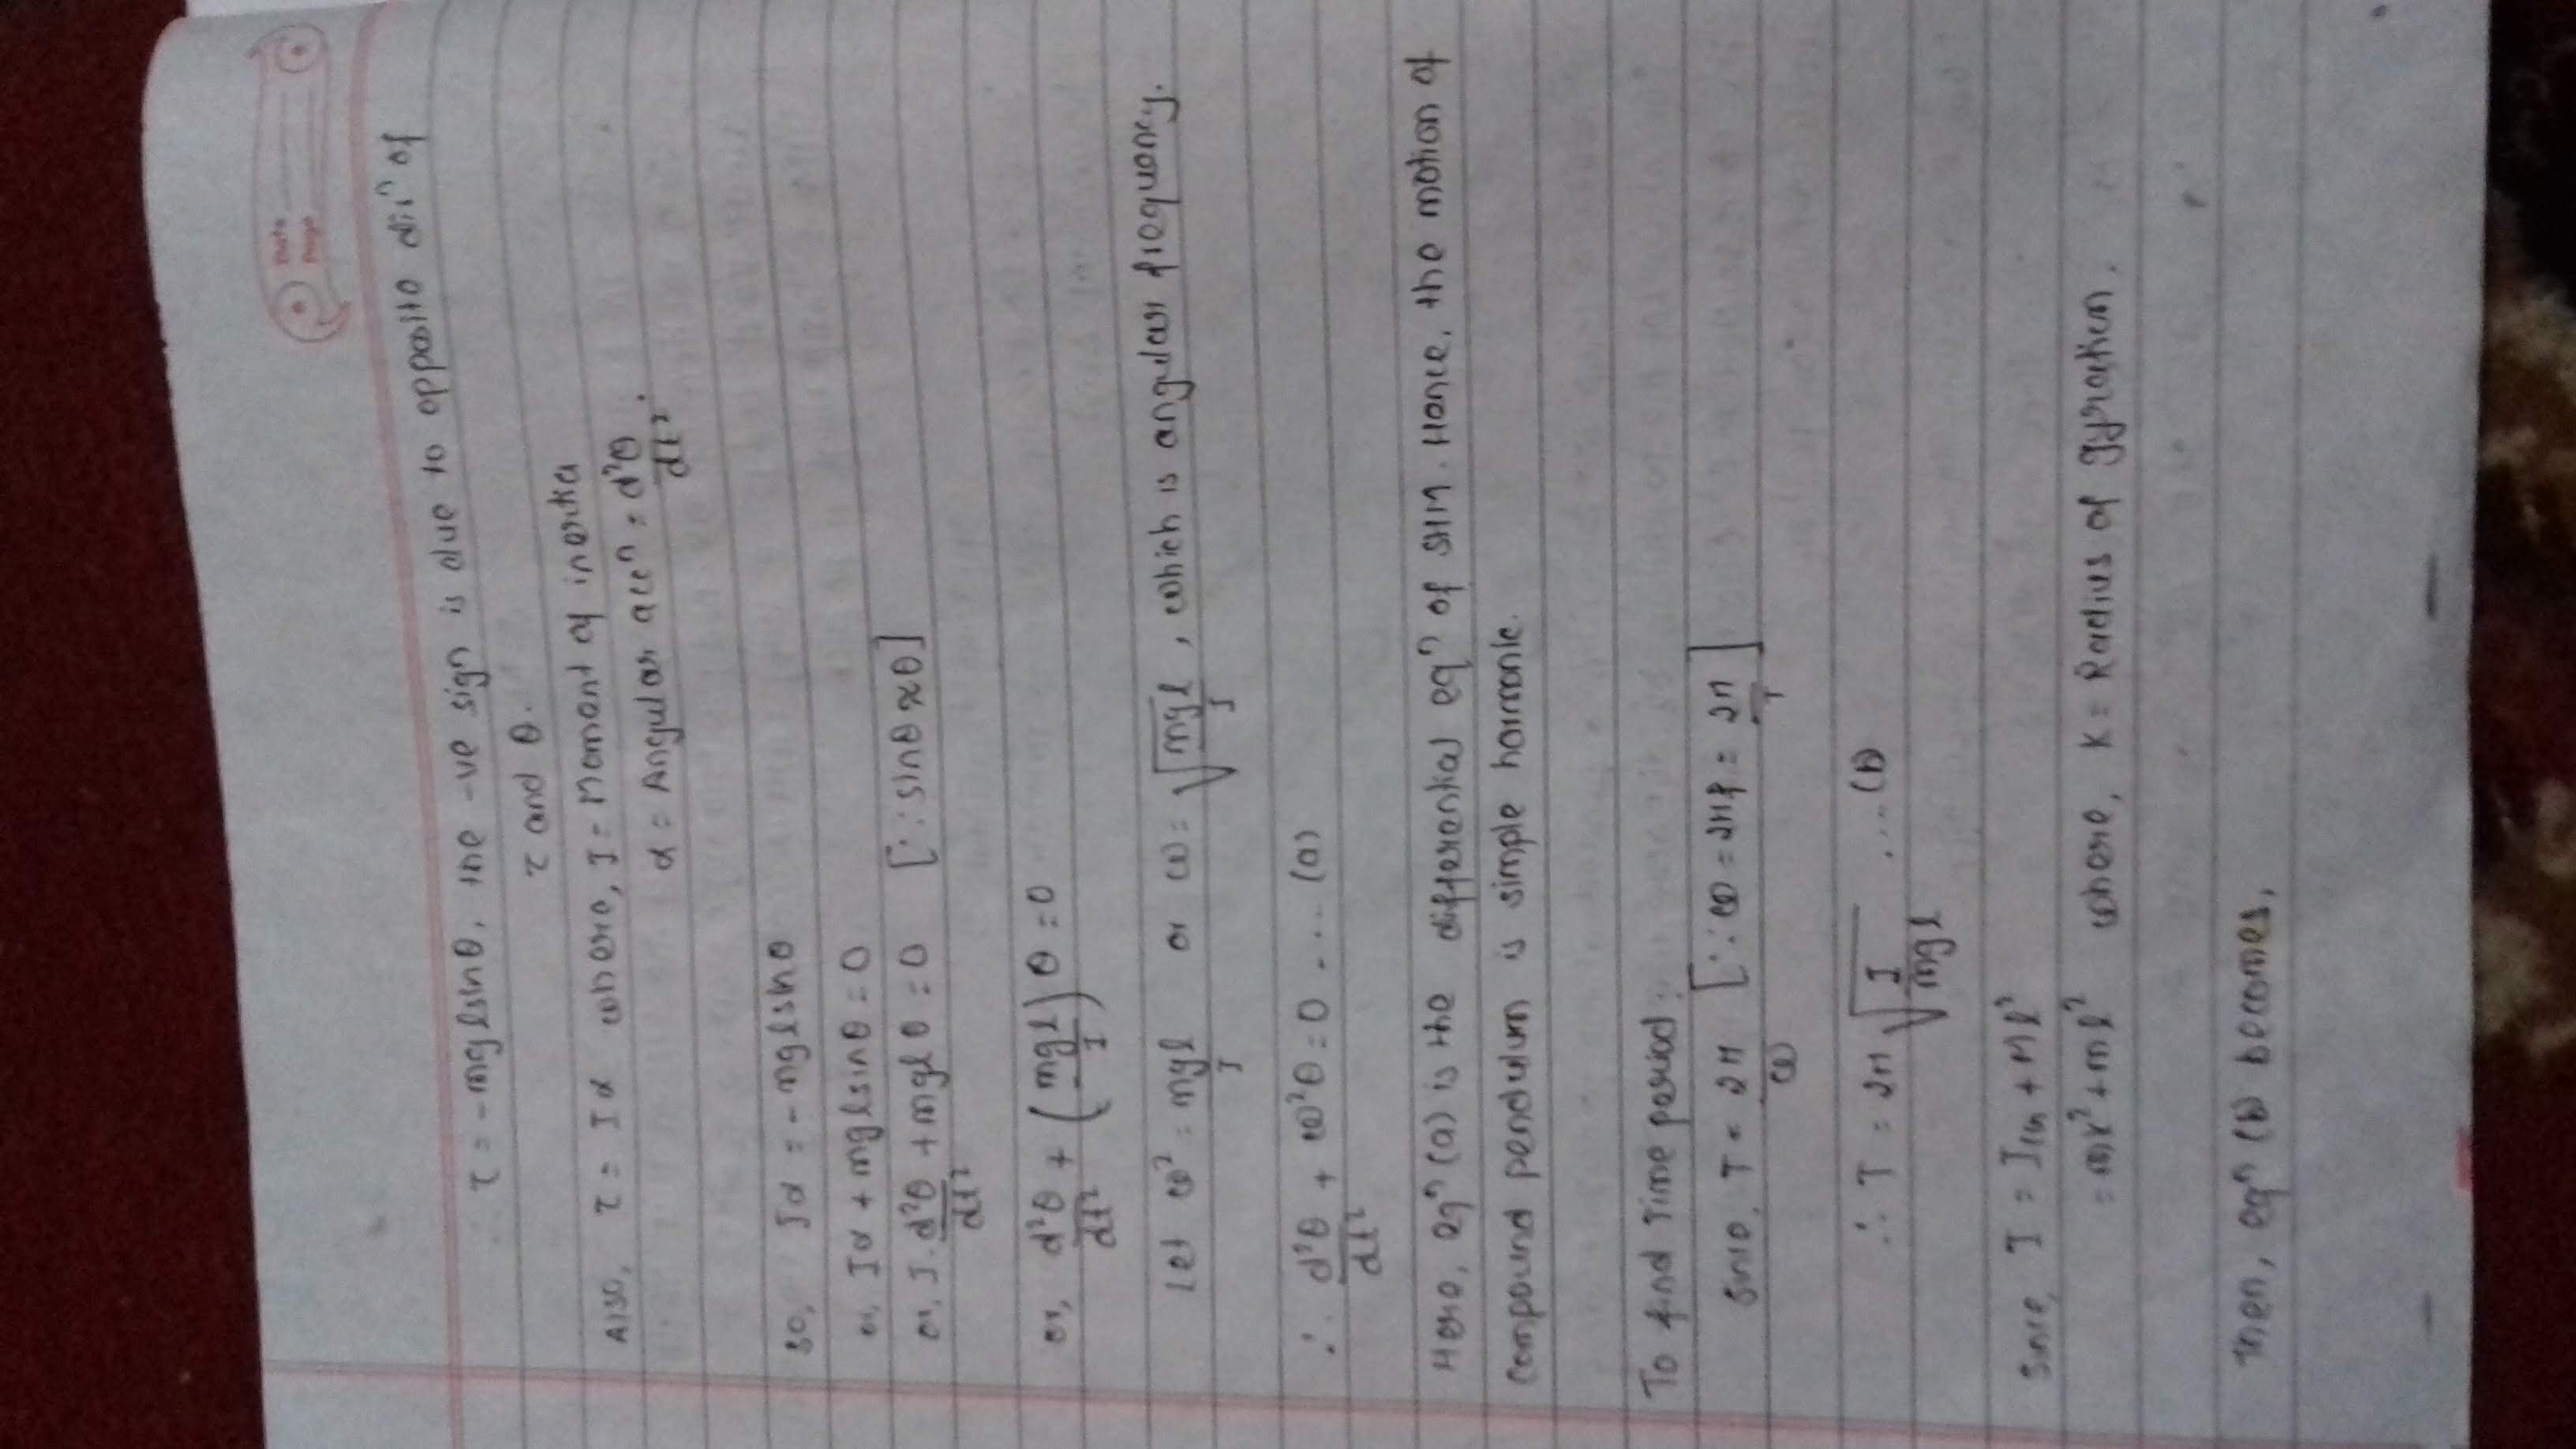 Date
Page
τ = -mglsinθ, the -ve sign is due to opposite dirⁿ of
τ and θ.
Also, τ = Iα where, I = Moment of inertia
α = Angular accⁿ = d²θ/dt².
So, Iα = -mglsinθ
or, Iα + mglsinθ = 0
or, I. d²θ/dt² + mglθ = 0 [∵ sinθ ≈ θ]
or, d²θ/dt² + (mgl/I) θ = 0
Let ω² = mgl/I or ω = √(mgl/I), which is angular frequency.
∴ d²θ/dt² + ω²θ = 0 .... (a)
Here, eqⁿ (a) is the differential eqⁿ of SHM. Hence, the motion of
compound pendulum is simple harmonic.
To find Time period:
Since, T = 2π/ω [∵ ω = 2πf = 2π/T]
∴ T = 2π √(I/mgl) ....(b)
Since, I = Icm + Ml²
= mk² + ml² where, K = Radius of gyration.
Then, eqⁿ (b) becomes,